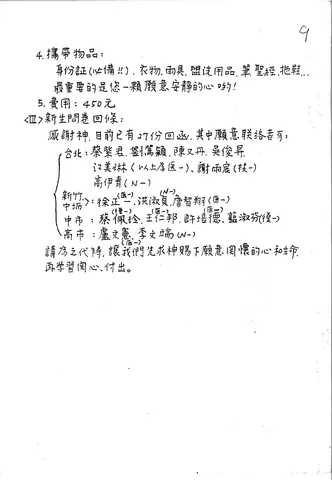 9
4. 攜帶物品:
身份証(必備!!)、衣物、雨具、盥洗用品、筆、聖經、拖鞋...
最重要的是您一顆願意安靜的心喲!
5. 費用: 450元
<Ⅲ>新生問卷回條:
感謝神,目前已有27份回函,其中願意聯絡者有:
台北: 蔡紫君、劉篤穎、陳又丹、吳俊昇、
江美琳(以上為医一)、謝雨宸(技一)
高伊青(N一)
新竹 中壢: 徐正一(医一)、洪淑貞(N一)、詹智翔(医一)
中市: 蔡佩玲(復一)、王仁邦(医一)、許培德(医一)、藍淑芬(復一)
高市: 盧文憲(医一)、李文端(N一)
請為之代禱,讓我們先求神賜下願意関懷的心和生命,
再学習関心、付出。